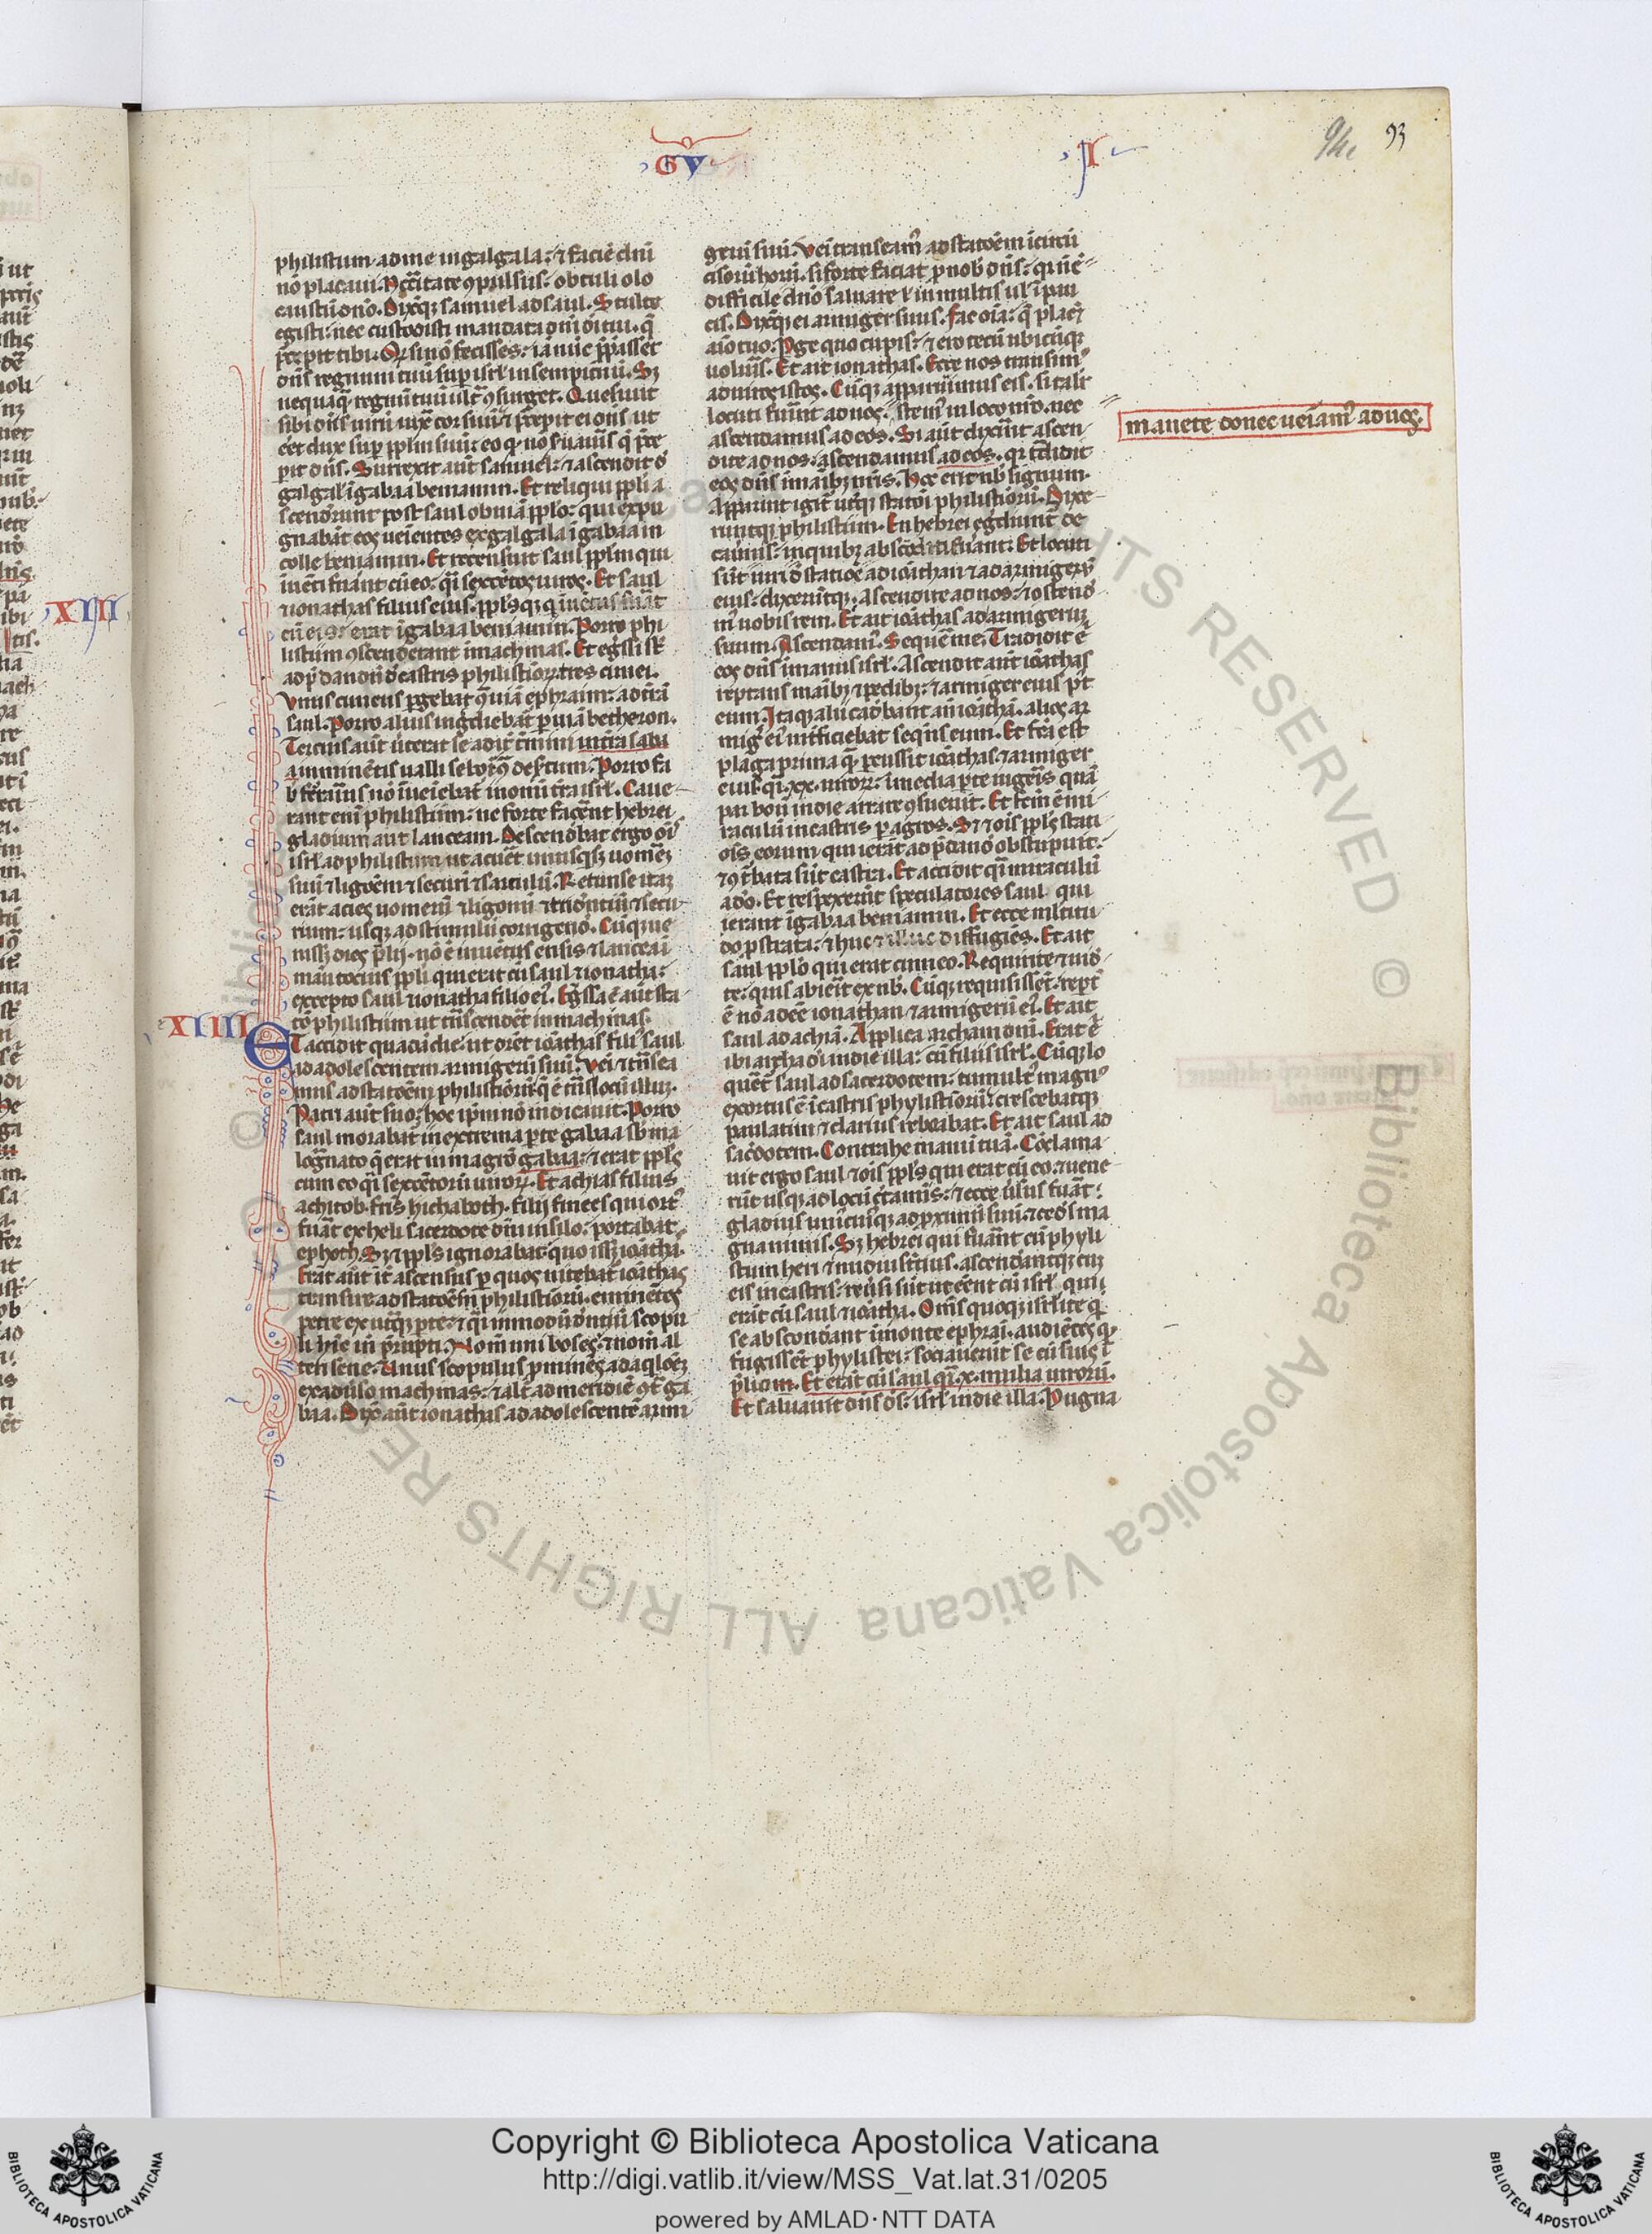 GV
I
94
93
philistiim ad me in galgala: ⁊ faciē dn̄i
nō placaui. Nc̄c̄itate ꝯpulsus: obtuli olo
caustū dn̄o. Dixitqꝫ samuel ad saul. Stulte
egisti: nec custodisti mandata dn̄i dī tui. q̄
p̄cepit tibi. Qḋ si nō fecisses: iā nūc p̄parasset
dn̄s regnum tuū sup̄ isrl̄ in sempitnū. Sꝫ
nequaq̄ regnū tuū ult̄ ꝯsurget. Quesiuit
sibi dn̄s uirū iux̄ cor suū: ⁊ p̄cepit ei dn̄s ut
eēt dux sup̄ pplm̄ suū: eo ꝙ nō s̄uaūis q̄ p̄ce
pit dn̄s. Surrexit aūt samuel: ⁊ ascendit ꝺ̄
galgal̄ ī gabaa beniamin. Et reliqui ppl̄i a
scenderunt post saul obuiā pplo: qui expu
gnabāt eos ueientes ex galgala ī gabaa in
colle beniamin. Et recensuit saul pplm̄ qui
inuēti fuāt cū eo: q̄i sexcētos uiros. Et saul
⁊ ionathas filius eius. ppl̄sqꝫ q̄ inuētus fuāt
cū eis: erat ī gabaa beniamin. Porro phi
listiim ꝯscenderant ī machmas. Et eḡssi st̄
ad p̄dandū ꝺ̄ castris philistior̄ tres cunei.
Vnus cuneus p̄gebat ꝯ̄ uiā ephraim: ad t̄rā
saul. Porro alius ingdiebat̄ p uiā bethoron.
Tercius aūt ūterat se ad it̄ t̄mini īn t̄ra sabu
a īminētis ualli seboī ꝯ̄ desertum. Porro fa
b̄ ferrarius nō īueiebat̄ ī omī t̄ra isrl̄. Caue
rant enī philistiim: ne forte facēnt hebrei
gladium aut lanceam. Descendebat ergo oīs
isrl̄ ad philistiim ut acueret unusqisqꝫ uomerē
suū ⁊ ligonē ⁊ securī ⁊ sarculū. Retunse itaqꝫ
erāt acies uomerū ⁊ ligonū ⁊ tridentiū ⁊ secu
rium: usqꝫ ad stimulū corrigendū. Cūqꝫ ue
nissꝫ dies p̄lii. nō ē inuētus ensis ⁊ lancea ī
manu tocius ppl̄i qui erat cū saul ⁊ ionatha:
excepto saul ⁊ ionatha filio ei⁹. Eḡssa ē aūt sta
tō philistiim ut t̄nscenderet in machmas.
XIIII
Et accidit quadā die: ut dicet ioāthas fili⁹ saul
ad adolescentem armigerū suū. Vei ⁊ t̄nsea
mus ad statoēm philistiorū: q̄ ē t̄ns locū illum.
Patri aūt suo: hoc ip̄m nō indicauit. Porro
saul morabat̄ in extrema p̄te gabaa sb ma
lognato q̄ erat in magron gabaa: ⁊ erat ppl̄s
cum eo q̄i sexcētorū uiror̄. Et achias filius
achitob. fr̄is hichaboth. filii finees qui ort⁹
fuāt ex heli sacerdote dn̄i in silo: portabat
ephoth. Sꝫ ⁊ ppl̄s ignorabat quo issꝫ ioātha.
Erāt aūt īt̄ ascensus p quos nitebat̄ ioāthas
transire ad statoēm philistiorū. eminētes
petre ex utqꝫ p̄te: ⁊ q̄i ī modū dentiū scopu
li hīc īn p̄rupti. Nom̄ uni boses: ⁊ nom̄ al
teri sene. Unus scopulus p̄minēs ad aqlōēꝫ
ex aduso machmas: ⁊ alt̄ ad meridiē ꝯt̄ ga
baa. Dixit aūt ionathas ad adolescentē armi
gerū suū. Vei transeam⁹ ad statoēm īcircū
cisorū horū. si forte faciat p nob dn̄s: q̄r nō ē
difficile dn̄o saluare ł in multis uł ī pau
cis. Dixitqꝫ ei armiger suus. Fac oīa: q̄ placēt
aīo tuo. Pge quo cupis: ⁊ ero tecū ubicūqꝫ
uolūis. Et ait ionathas. Ecce nos transim⁹
ad uiros istos. Cūqꝫ apparuimus eis. si talit̄
locuti fuīnt ad nos: stem⁹ in loco nr̄o. nec
manete donec ueiam⁹ ad uos.
ascendamus ad eos. Si aūt dixīnt ascen
dite ad nos: ascendamus ad eos. q̄r t̄didit
eos dn̄s ī manibꝫ nr̄is. Hoc erit nb̄ signum.
Apparuit igit̄ ut̄qꝫ statōi philistiorū. Dixe
runtqꝫ philistiim. En hebrei eḡdiunt̄ de
cauernis: in quibꝫ absconditi fuānt: Et locuti
sūt uiri ꝺ̄ statioē ad ioāthan ⁊ ad armigerū
eius: dixeruntqꝫ. Ascendite ad nos: ⁊ ostend
m⁹ uobis rem. Et ait ioāthas ad armigerum
suum. Ascendam⁹. Sequē me. Tradidit ē
eos dn̄s ī manus isrl̄. Ascendit aūt ioāthas
reptans manibꝫ ⁊ pedibꝫ: ⁊ armiger eius p̄t
eum. Itaqꝫ alii cadebant an̄ ioāthā. alios ar
miḡ ei⁹ int̄ficiebat seqn̄s eum. Et fcā est
plaga prima q̄ p̄cussit ioāthas: ⁊ armiger
eius q̄i .xx. uiror̄: ī media p̄te iugeris quā
par boū in die arare ꝯsueuit. Et fcm̄ ē mi
raculū in castris p agros. Sꝫ ⁊ oīs ppl̄s stati
ōis eorum qui ierāt ad p̄dandū obstupuit:
⁊ ꝯt̄bata sūt castra. Et accidit q̄i miraculū
a do. Et respexerūt speculatores saul qui
ierant ī gabaa beniamin. Et ecce multitu
do p̄strata: ⁊ huc ⁊ illuc diffugiēs. Et ait
saul pplo qui erat cum eo. Requirite ⁊ uide
te: quis abierit ex nb̄. Cūqꝫ requisissēt: rep̄t
ē nō adeē ionathan ⁊ armigerū ei⁹. Et ait
saul ad achiā. Applica archam dn̄i. Erat ē
ibi archa dī in die illa: cū filiis isrl̄. Cūqꝫ lo
quēt saul ad sacerdotem: tumult⁹ magn⁹
exortus ē ī castris phylistiorū: crescebatqꝫ
paulatim ⁊ clarius reboabat. Et ait saul ad
sacdotem. Contrahe manū tuā. Cōclama
uit ergo saul ⁊ oīs ppl̄s qui erat cū eo: ⁊ uene
rūt usqꝫ ad locū c̄taminis: ⁊ ecce uersus fuāt
gladius uniuscuiusqꝫ ad p̄ximū suū: ⁊ cedes ma
gna nimis. Sꝫ hebrei qui fuānt cū phyli
stiim heri ⁊ nudiusterius. ascenderantqꝫ cum
eis in castris: reuersi sūt ut eēnt cū isrl̄ qui
erāt cū saul ⁊ ioātha. Om̄s quoqꝫ isrl̄ite q̄
se absconderant ī monte ephraī. audiētes ꝙ
fugissēt phylistei: sociauerūt se cū suis ī
p̄lio. Et erāt cū saul q̄i .x. milia uirorū.
Et saluauit dn̄s ds: isrl̄ in die illa. Pugna
XIII
Copyright © Biblioteca Apostolica Vaticana
http://digi.vatlib.it/view/MSS_Vat.lat.31/0205
powered by AMLAD·NTT DATA
BIBLIOTECA APOSTOLICA VATICANA
BIBLIOTECA APOSTOLICA VATICANA
© Biblioteca Apostolica Vaticana ALL RIGHTS RESERVED